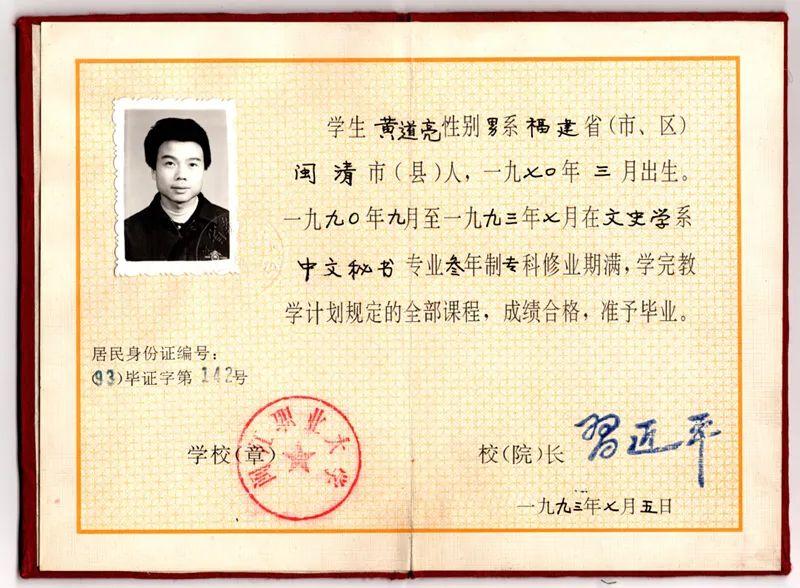 学生 黄道亮 性别 男 系 福建 省(市、区)
闽清 市(县)人, 一九七〇年 三 月出生。
一九九〇年九月至一九九三年七月在文史学系
中文秘书 专业叁年制专科修业期满,学完教
学计划规定的全部课程,成绩合格,准予毕业。
居民身份证编号:
(93)毕证字第 142号
学校(章)
校(院)长 習近平
一九九三年七月五日
业大学